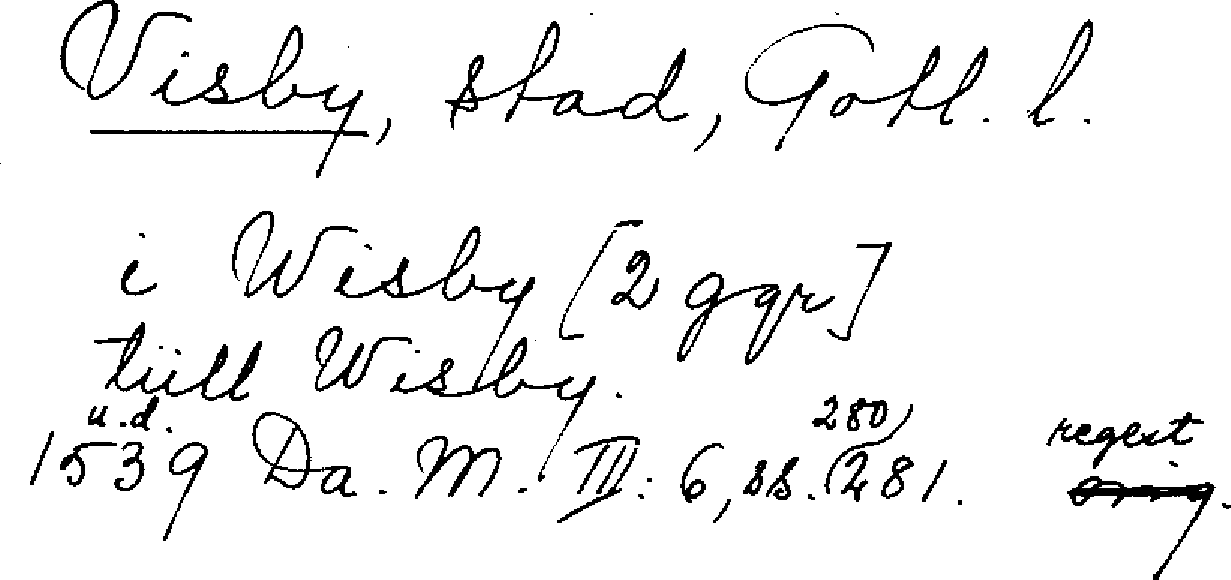 Visby, stad, Gotl. l.
i Wisby [2 ggr]
tiill Wisby.
u.d.
1539 Da. M. III: 6, ss. 280, 281. regest
orig.